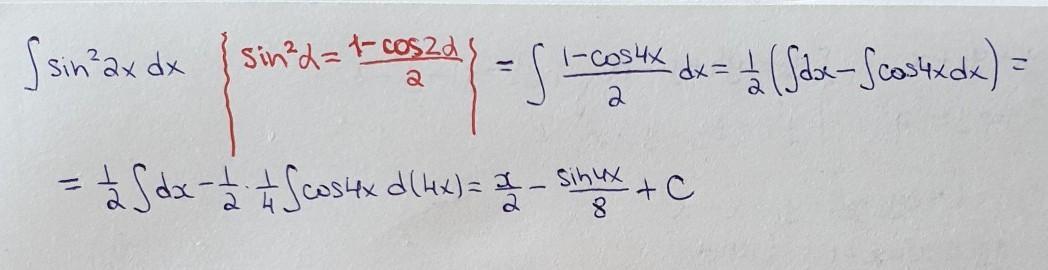 ∫ sin²2x dx { sin²α = (1-cos2α)/2 } = ∫ (1-cos4x)/2 dx = 1/2 (∫dx - ∫cos4xdx) =
= 1/2 ∫dx - 1/2 · 1/4 ∫cos4x d(4x) = x/2 - sin4x/8 + C